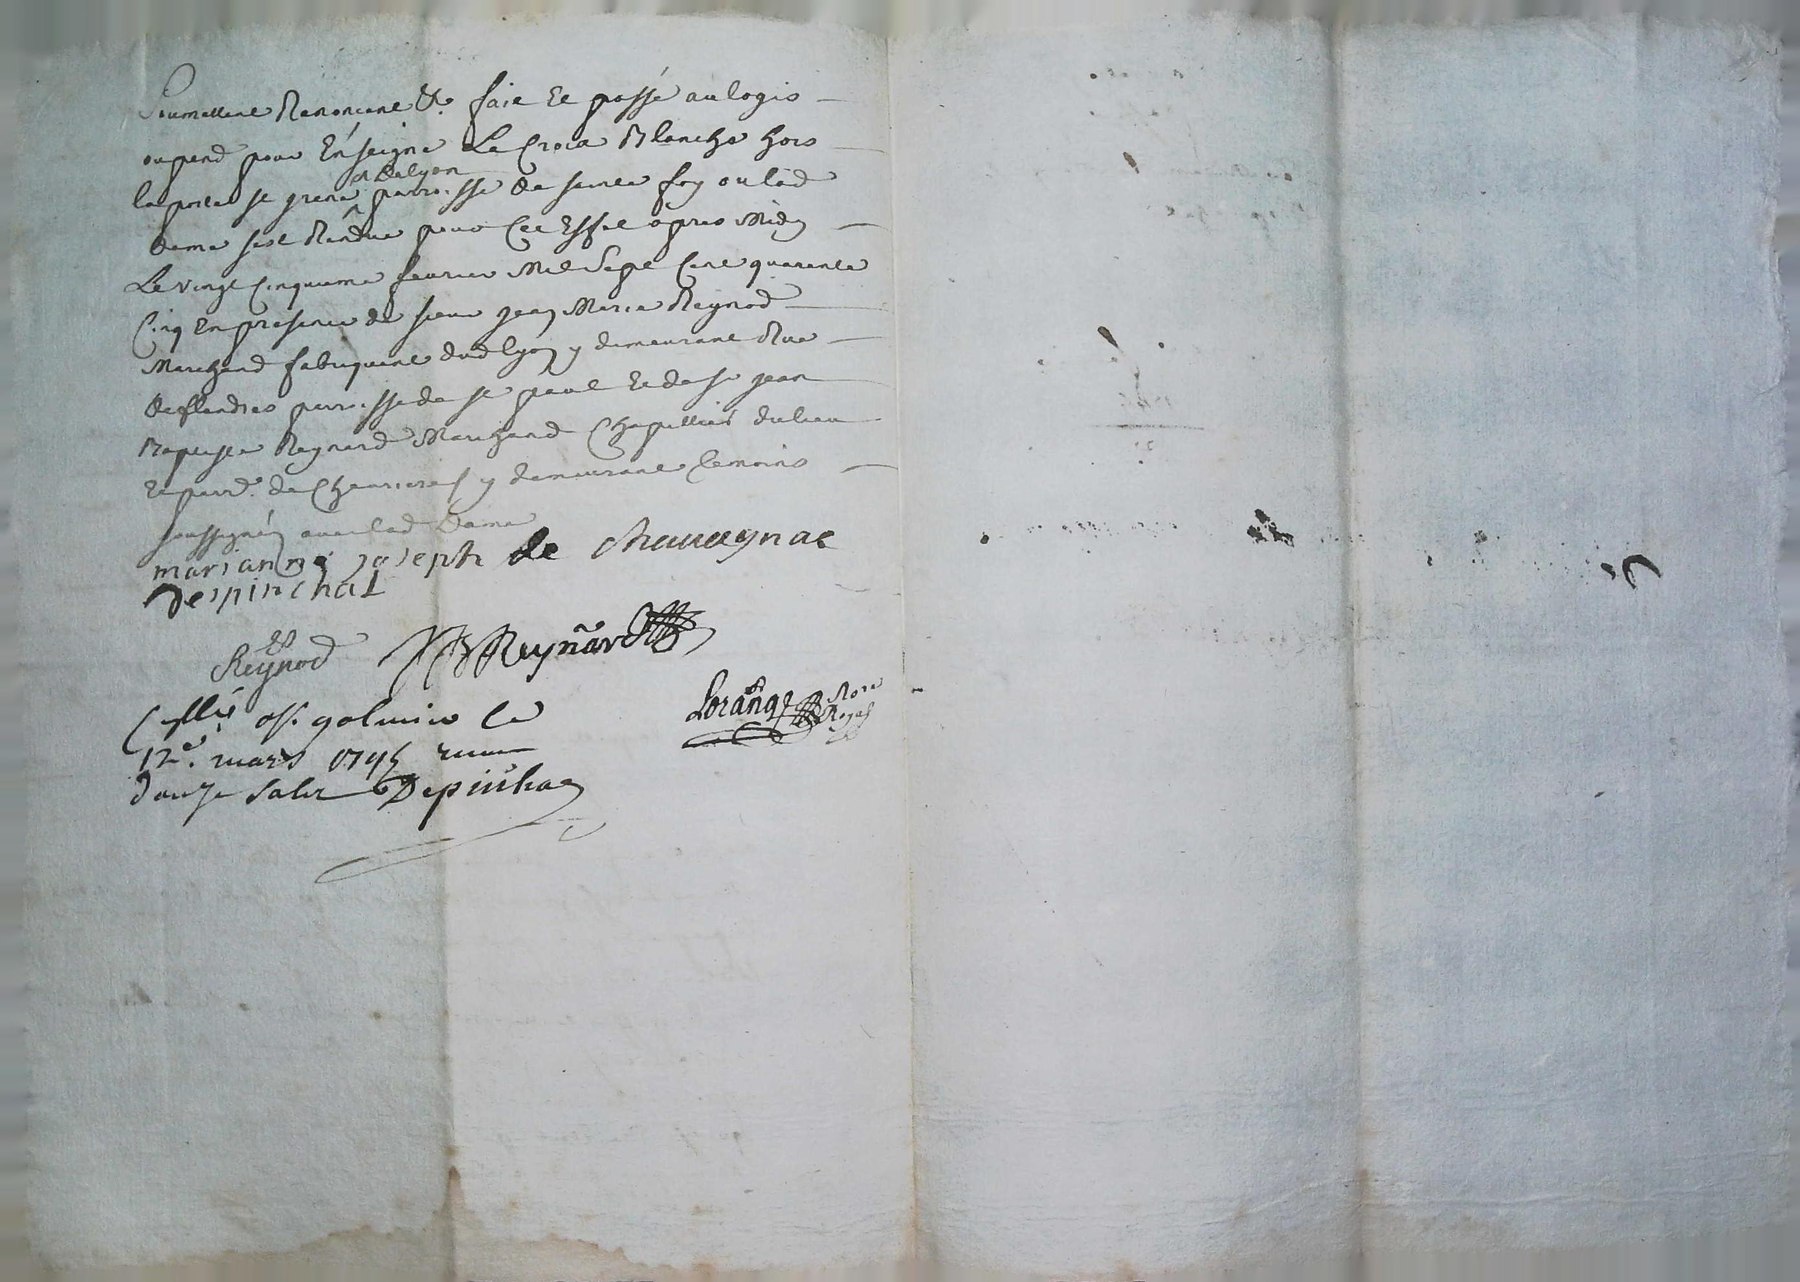 Soumettant Renonçant &. fait et passé au logis
ou pend pour Enseigne La Croix Blanche hors
la porte st irené de Lyon parroisse de sainte foy ou lad
dame sest Rendue pour Cet Effet apres Midy
Le vingt Cinquieme feurier Mil Sept Cent quarante
Cinq En presence de sieur jean Marie Reynod
Marchand fabriquant dud lyon y demeurant Rue
de flandres parroisse de st paul et de sr jean
Baptiste Reynard Marchand Chapellier du lieu
et parr.e de Cheurieres y demeurant temoins
soussignéz auec lad Dame
marianne joseph de chauaygnac
Despinchal
Reynod JB Reynard
Lorang Nore Royal
C ellé à St galmier le
12e. mars 1745 recu
douze sols Depinha